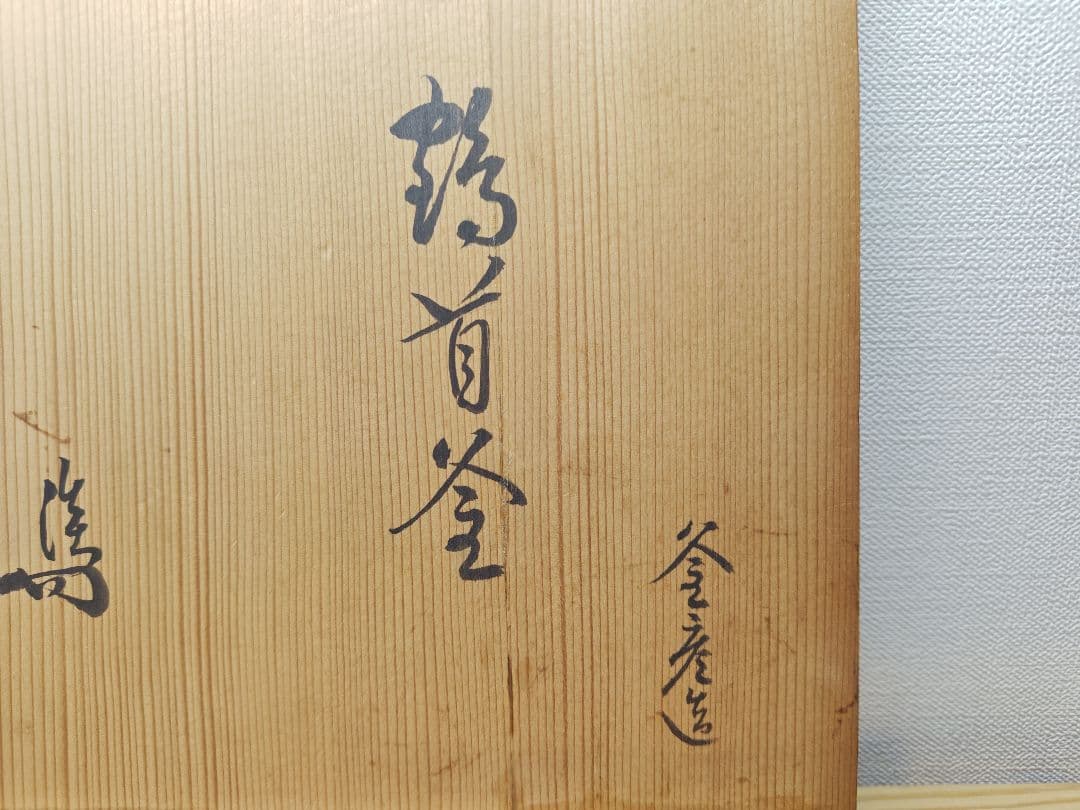 釜彦造
鶴首釜